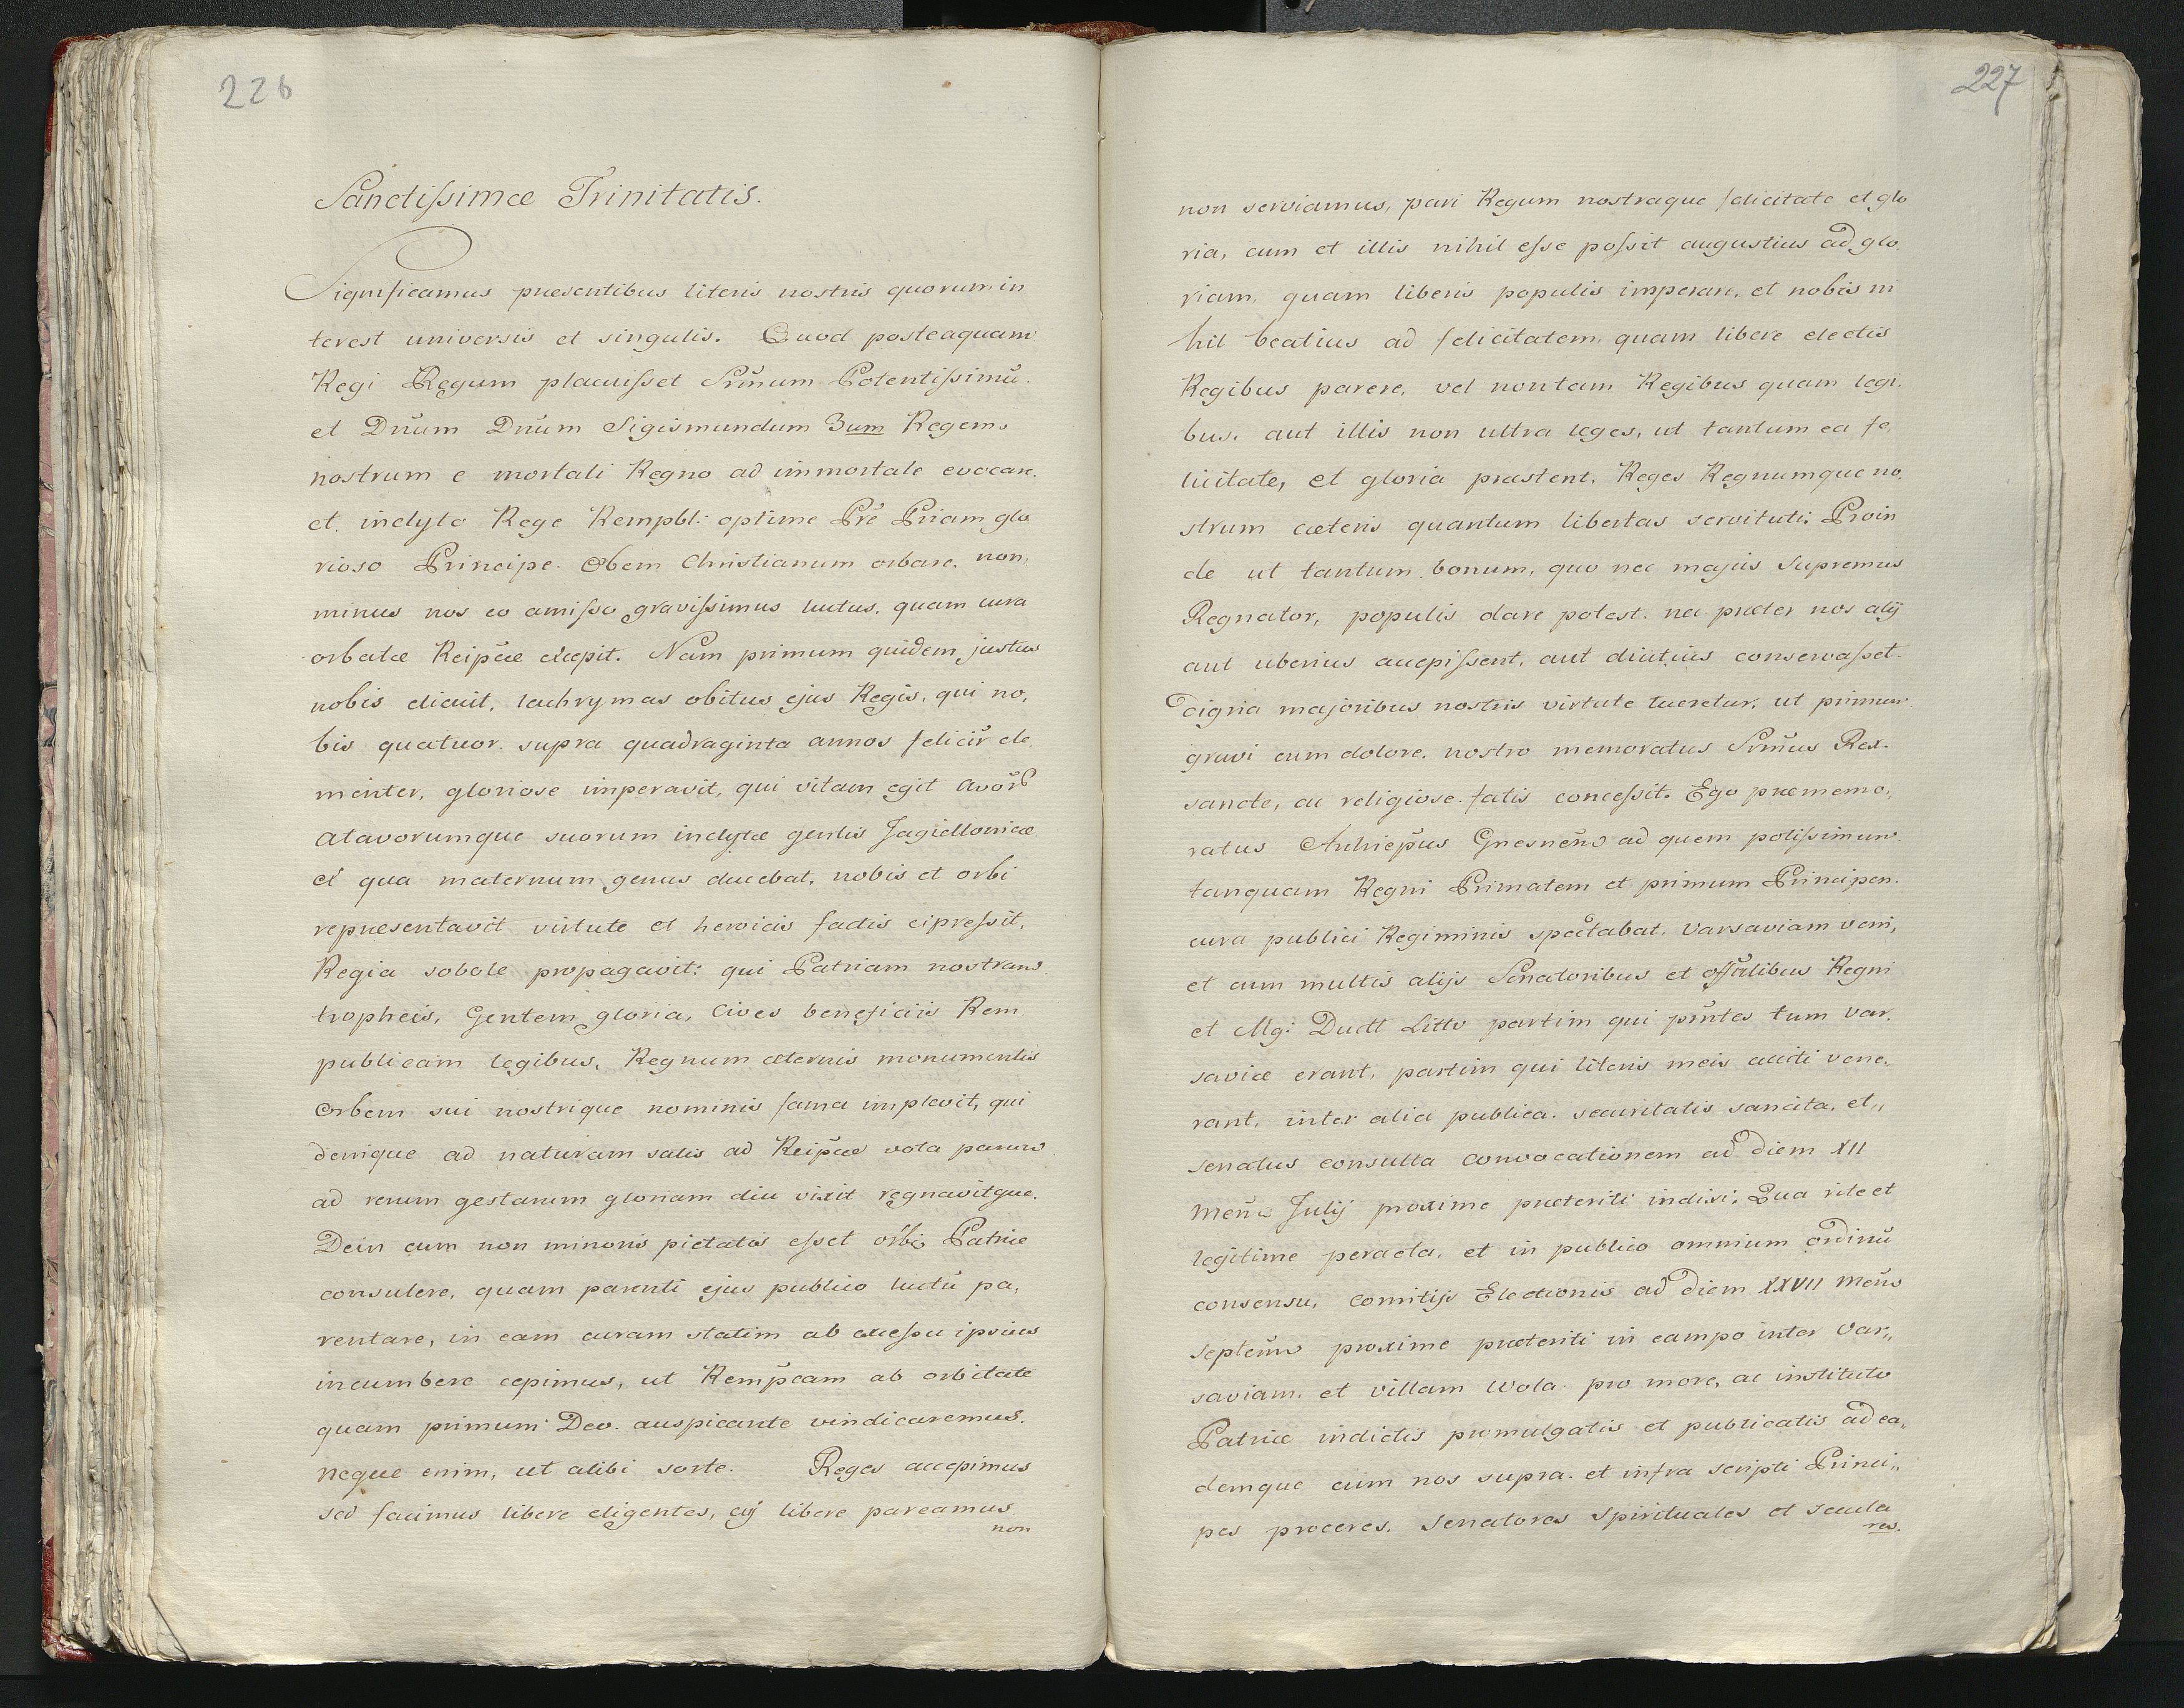 226
Sanctissimae Trinitatis.
Significamus praesentibus literis nostris quorum in
terest universis et singulis. Quod posteaquam
Regi Regum placuisset Srñum Potentissimū.
et Dnūm Dnūm Sigismundum 3um Regem
nostrum e mortali Regno ad immortale evocare.
et. inclyto Rege Rempbl: optime Prē Priam glo
rioso Principe. Obem Christianum orbare. non,
minus nos eo amisso gravissimus luctus, quam cura
orbatae Reipcae excepit. Nam primum quidem justas
nobis elicuit, lachrymas obitus ejus Regis, qui no,
bis quatuor. supra quadraginta annos felicir cle
menter, gloriose imperavit, qui vitam egit avor
Atavorumque suorum inclytae gentis Jagiellonicae
ex qua maternum genus ducebat, nobis et orbi
repraesentavit virtute et heroicis factis expressit,
Regia sobole propagavit: qui Patriam nostram
tropheis, Gentem gloria, Cives beneficiis Rem
publicam legibus, Regnum aeternis monumentis
Orbem sui nostrique nominis fama implevit, qui
denique ad naturam satis ad Reipcae vota parum
ad rerum gestarum gloriam diu vixit regnavitque.
Dein cum non minoris pietatis esset orbi Patriae
consulere, quam parenti ejus publico luctū pa,
rentare, in eam curam statim ab excessu ipsius
incumbere cepimus, ut Rempcam ab orbitate
quam primum Deo. auspicante vindicaremus.
neque enim, ut alibi sorte. Reges accepimus
sed facimus libere eligentes, cij libere pareamus
non
227
non serviamus, pari Regum nostraque felicitate et glo
ria, cum et illis nihil esse possit augustius ad glo
riam, quam liberis populis imperare, et nobis ni
hil beatius ad felicitatem, quam libere electis
Regibus parere, vel non tam Regibus quam legi,
bus, aut illis non ultra leges, ut tantum ea fe,
licitate, et gloria praestent, Reges Regnumque no,
strum caeteris quantum libertas servituti. Proin
de ut tantum bonum, quo nec majus Supremus
Regnator, populis dare potest. nec praeter nos alij
aut uberius accepissent, aut diutius conservasset.
digna majoribus nostris virtute tueretur, ut primum
gravi cum dolore. nostro memoratus Srmūs Rex.
sancte, ac religiose. fatis concessit. Ego praememo,
ratus Archiepūs Gnesnēn ad quem potissimum
tanquam Regni Primatem et primum Principem.
cura publici Regiminis spectabat, Varsaviam veni,
et cum multis alijs Senatoribus et offālibus Regni
et Mg: Duct Littv partim qui prntes tum Var,
saviae erant, partim qui literis meis acciti vene,
rant, inter alia publica. securitatis sancita. et,,
senatus consulta convocationem ad diem XII
Mens Julij proxime praeteriti indixi; Qua rite et
legitime peracta, et in publico omnium ordinū
consensu, comitijs Electionis ad diem XXVII Mens
Septemb proxime praeteriti in campo inter Var,,
saviam. et villam Wola pro more, ac instituto
Patriae indictis promulgatis et publicatis ad ea,
demque cum nos supra. et infra scripti Princi,,
pes proceres. Senatores Spirituales et saecula
res.